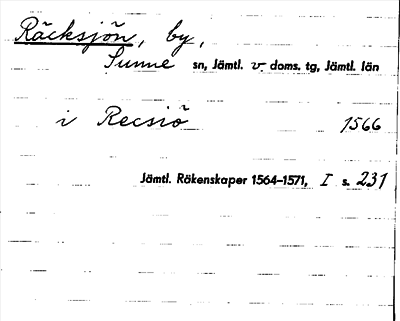 Räcksjön, by,
Sunne sn, Jämtl. v doms. tg, Jämtl. län
i Recsiö 1566
Jämtl. Räkenskaper 1564-1571, I s. 231